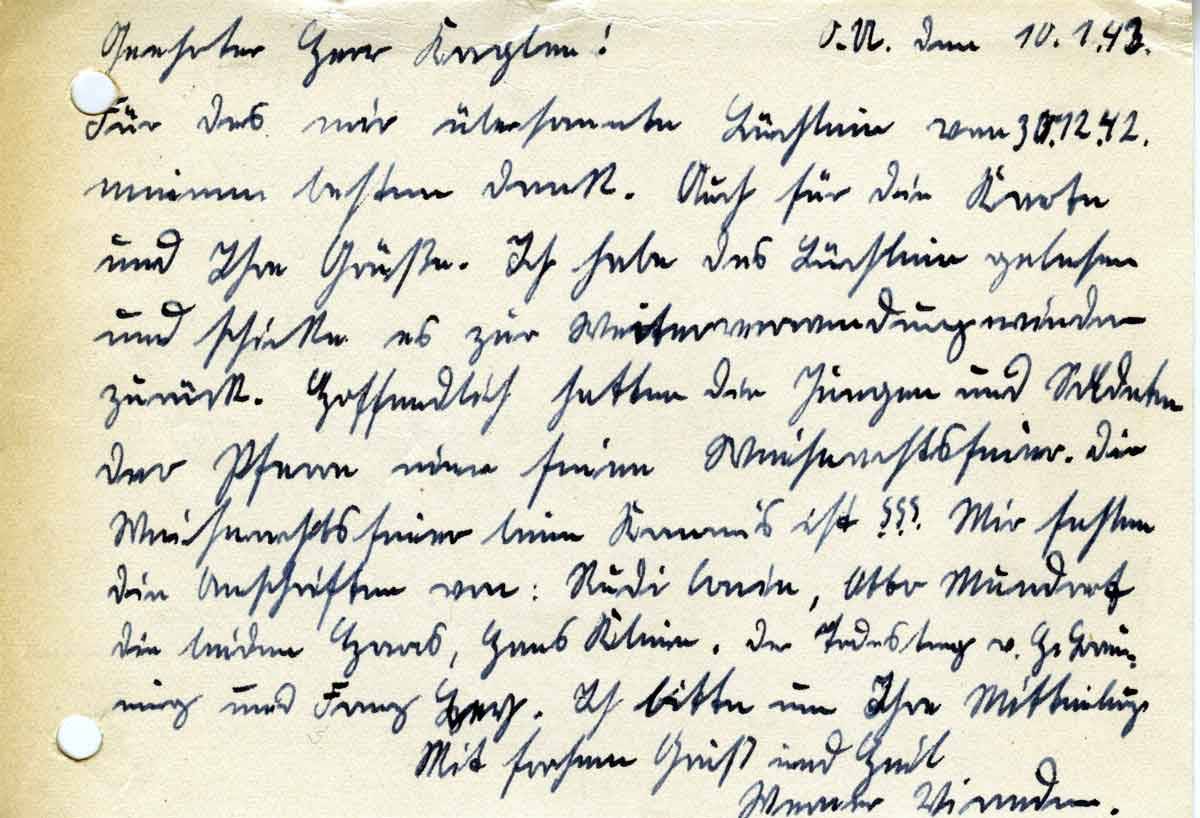 Geehrter Herr Kaplan! O.U. den 10.1.43.
Für das mir übersannte Büchlein vom 30.12.42.
meinen besten Dank. Auch für die Karte
und Ihre Grüße. Ich habe das Büchlein gelesen
und schicke es zur Weiterverwendung wieder
zurück. Hoffendlich hatten die Jungen und Soldaten
der Pfarre eine feine Weihnachtsfeier. Die
Weihnachtsfeier beim Kommis ist ???. Mir fehlen
die Anschriften von: Rudi , Otto Mundorf
die beiden Haas, Hans Klein. Der Todestag v. H.
und Franz . Ich bitte um Ihre Mitteilung.
Mit frohem Gruß und Heil
Werner